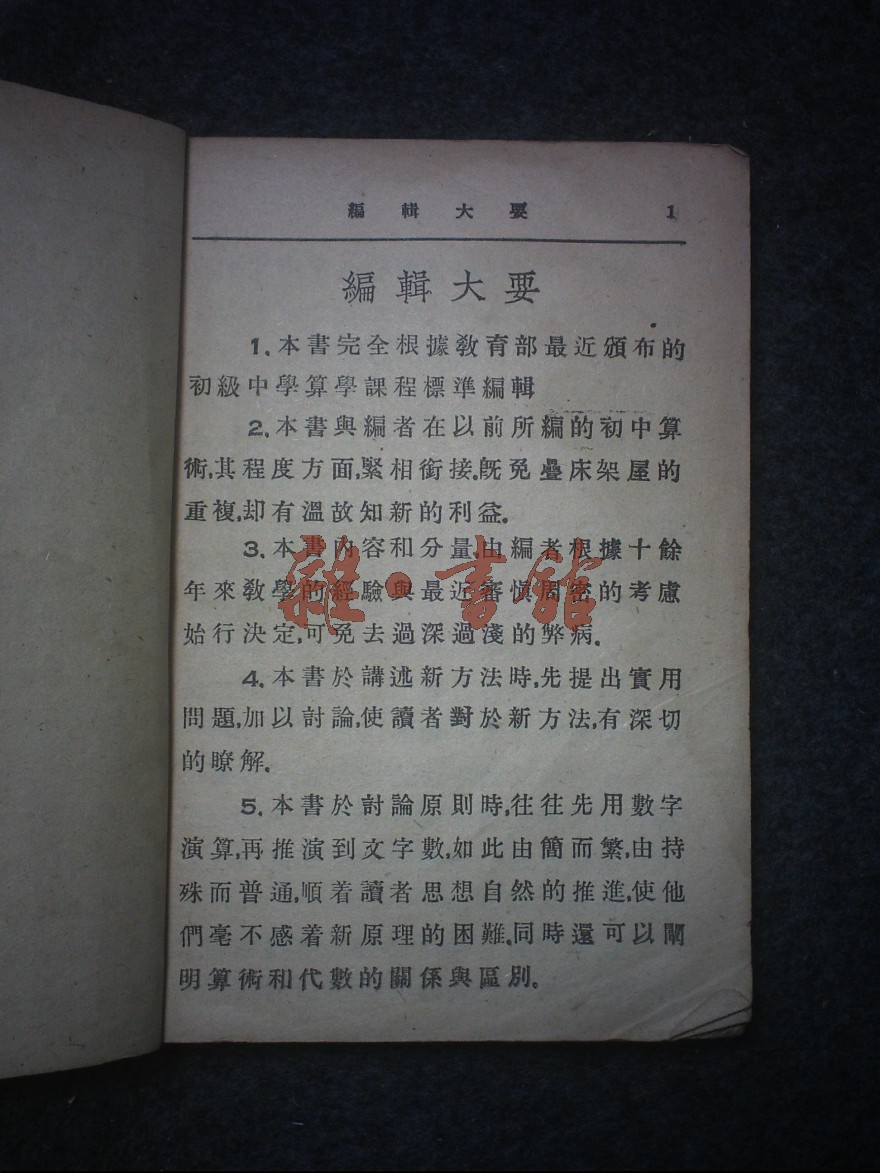 編輯大要 1
編輯大要
1.本書完全根據敎育部最近頒布的
初級中學算學課程標準編輯
2.本書與編者在以前所編的初中算
術,其程度方面,緊相銜接.旣免疊床架屋的
重複,却有溫故知新的利益.
3.本書內容和分量,由編者根據十餘
年來敎學的經驗與最近審慎周密的考慮
始行決定,可免去過深過淺的弊病.
4.本書於講述新方法時,先提出實用
問題,加以討論,使讀者對於新方法,有深切
的瞭解.
5.本書於討論原則時,往往先用數字
演算,再推演到文字數,如此由簡而繁,由持
殊而普通,順着讀者思想自然的推進,使他
們毫不感着新原理的困難,同時還可以闡
明算術和代數的關係與區別.
雜·書館